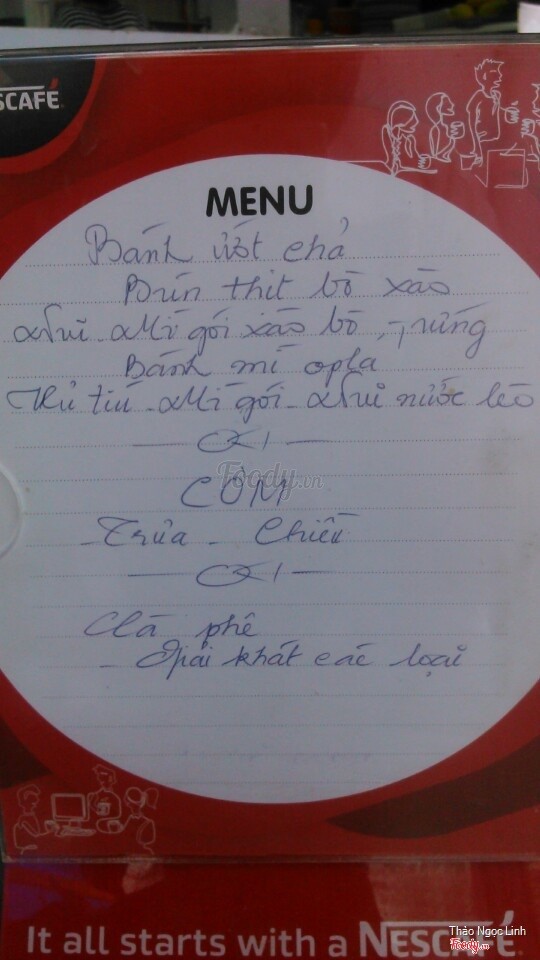 NESCAFÉ
MENU
Bánh ướt chả
Bún thịt bò xào
Nui - Mì gói xào bò, Trứng
Bánh mì opla
Hủ tiú - Mì gói - Nui nước lèo
Foody.vn
CƠM
- Trưa - Chiều
Cà phê
- Giải khát các loại
It all starts with a NESCAFÉ
Thảo Ngọc Linh
Foody.vn